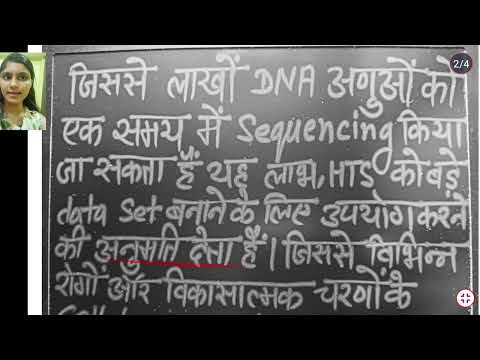 2/4
जिससे लाखों DNA अणुओं को
एक समय में Sequencing किया
जा सकता हैं यह लाभ, HTS को बड़े
data Set बनाने के लिए उपयोग करने
की अनुमति देता है । जिससे विभिन्न
रोगों और विकासात्मक चरणों के